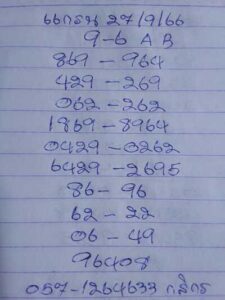 27/9/66
9-6 A B
869 - 964
429 - 269
062 - 262
1869 - 8964
0429 - 0262
6429 - 2695
86 - 96
62 - 22
06 - 49
96408
057-1264633 กสิกร